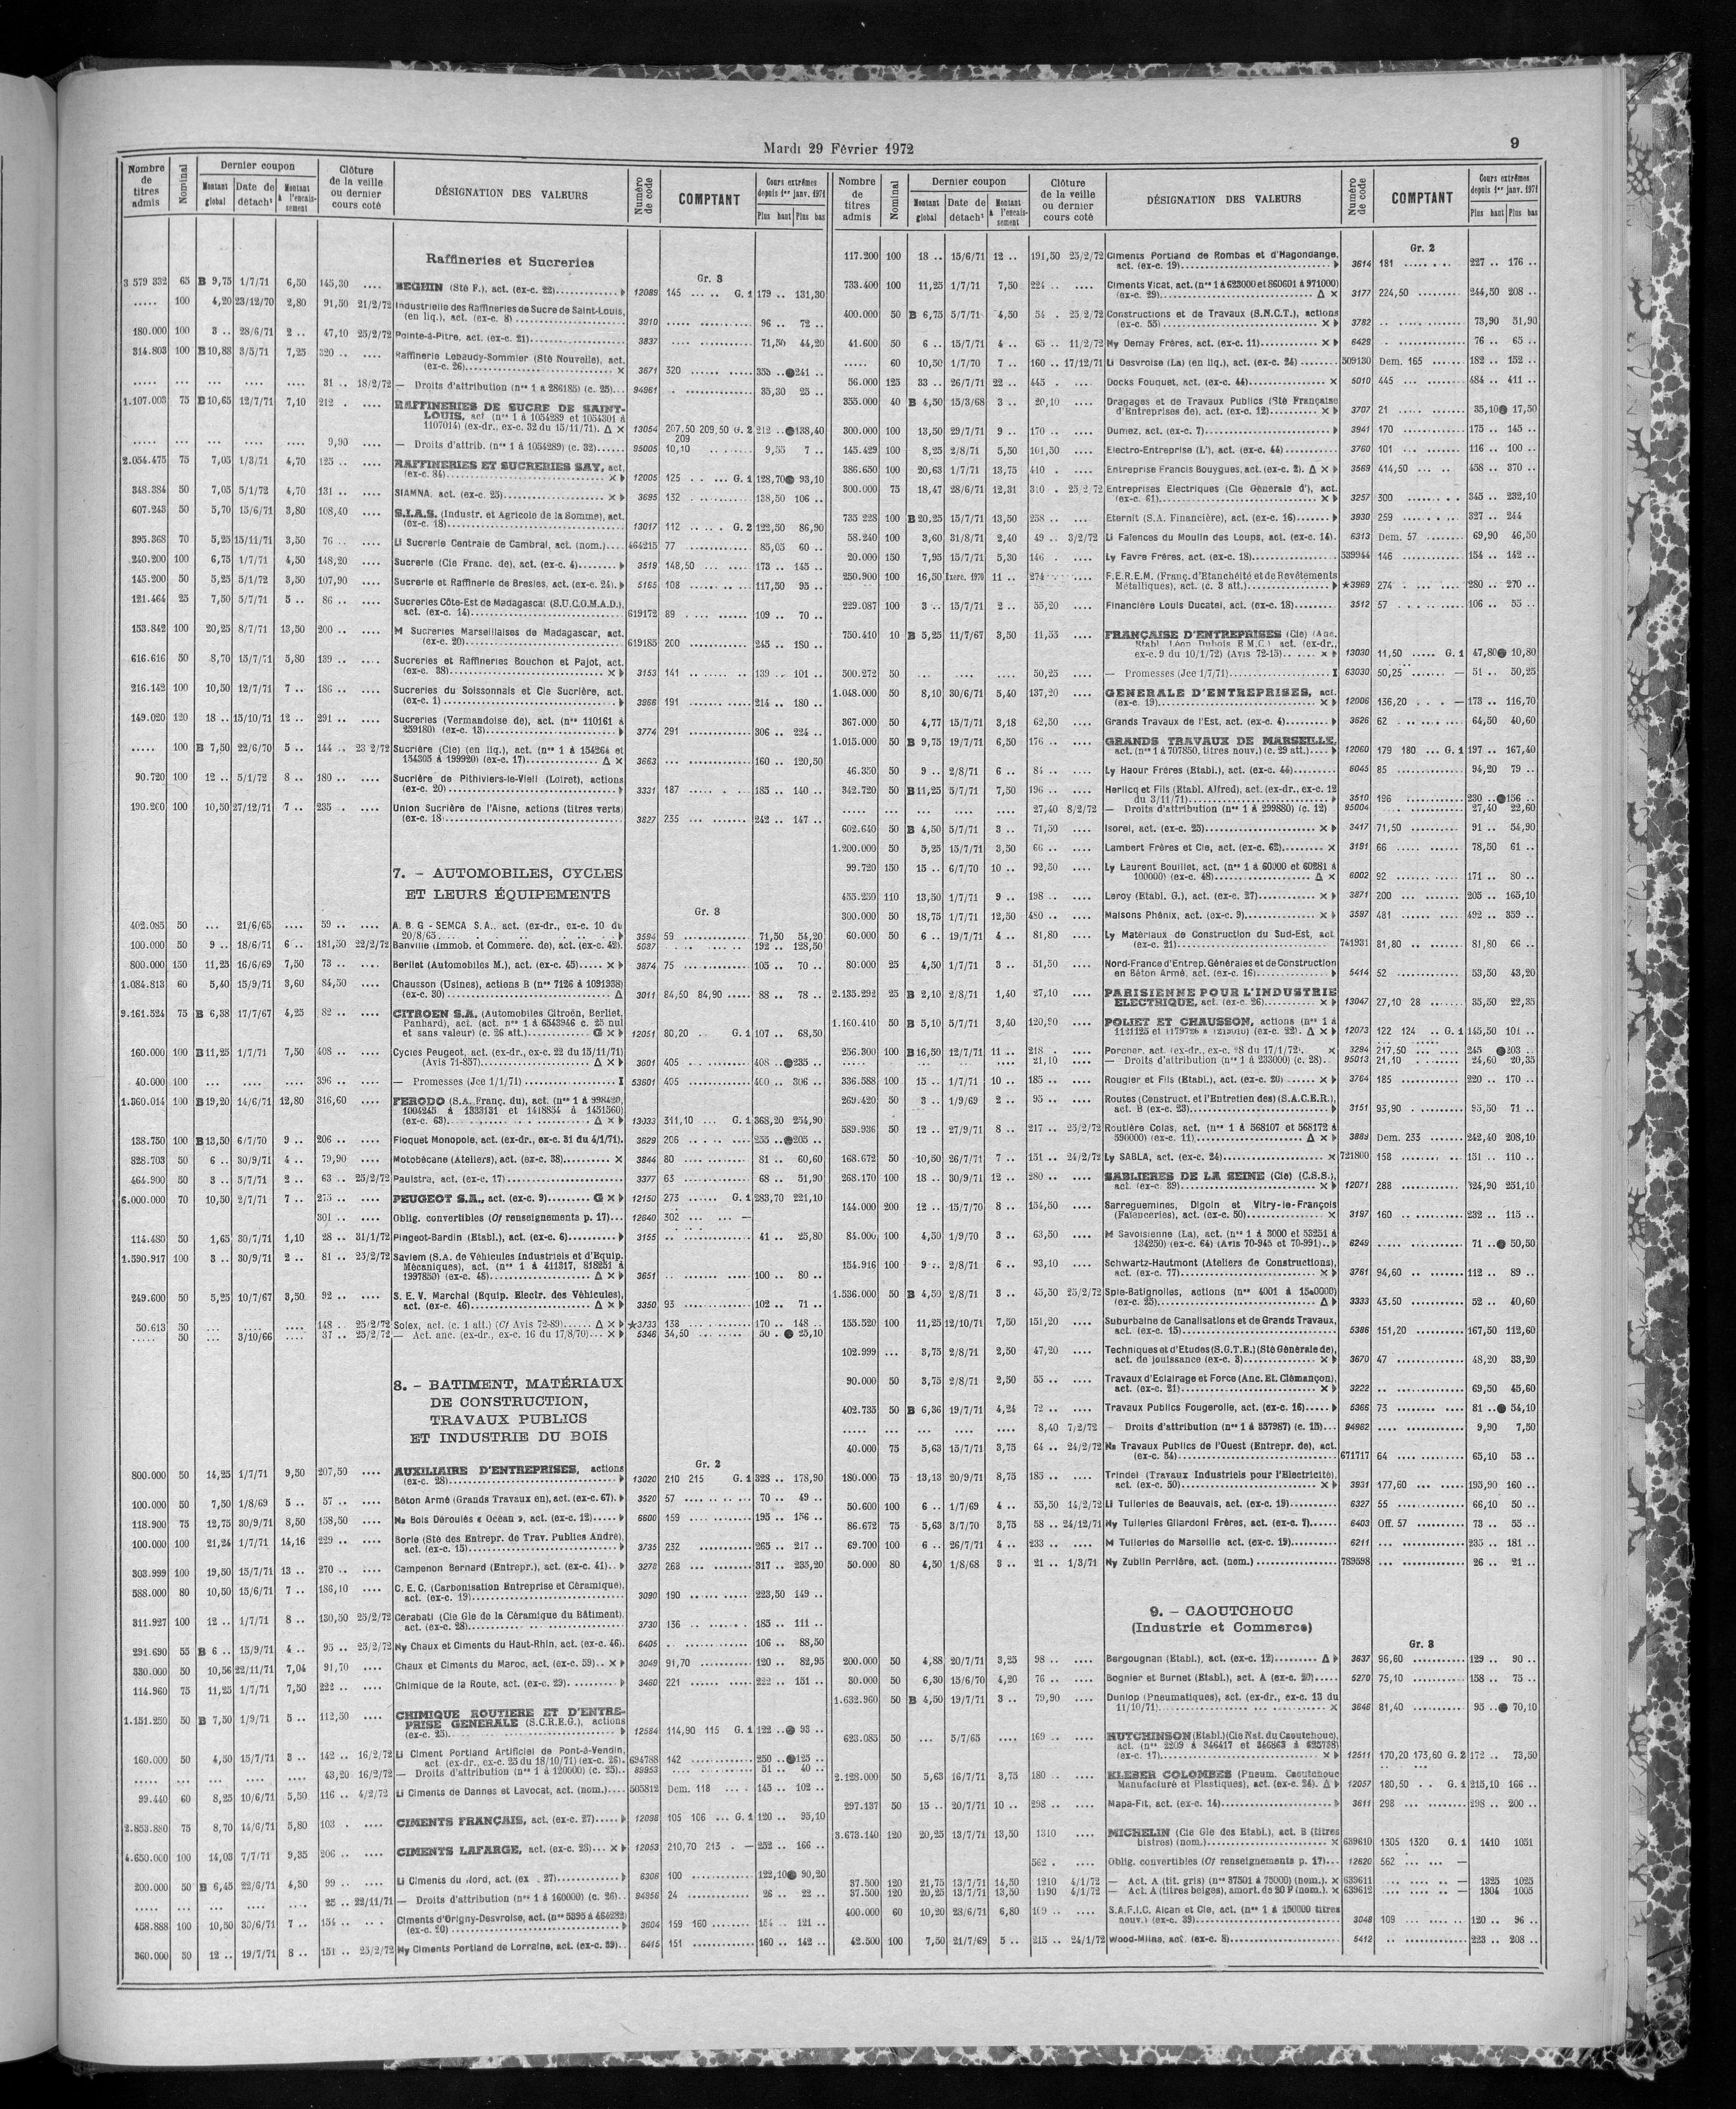 Mardi 29 Février 1972
9
Nombre de titres admis | Nominal | Dernier coupon | Montant global | Date de détach¹ | Montant à l'encaissement | Clôture de la veille ou dernier cours coté | DÉSIGNATION DES VALEURS | Numéro de code | COMPTANT | Cours extrêmes depuis 1er janv. 1971 | Plus haut | Plus bas
Raffineries et Sucreries
Gr. 3
3 579 332 65 B 9,75 1/7/71 6,50 145,30 .... BEGHIN (Sté F.), act. (ex-c. 22) 12089 145 G. 1 179 .. 131,30
..... 100 4,20 23/12/70 2,80 91,50 21/2/72 Industrielle des Raffineries de Sucre de Saint-Louis,
(en liq.), act. (ex-c. 8) 3910 96 .. 72 ..
180.000 100 3 .. 28/6/71 2 .. 47,10 25/2/72 Pointe-à-Pitre, act. (ex-c. 21) 3837 71,50 44,20
314.803 100 B 10,88 3/5/71 7,25 320 .. Raffinerie Lebaudy-Sommier (Sté Nouvelle), act.
(ex-c. 26) × 3671 320 355 .. ●241 ..
31 .. 18/2/72 — Droits d'attribution (nos 1 à 286185) (c. 25) 94961 35,30 25 ..
1.107.003 75 B 10,65 12/7/71 7,10 212 . RAFFINERIES DE SUCRE DE SAINT-
LOUIS, act. (nos 1 à 1054289 et 1054301 à
1107014) (ex-dr., ex-c. 32 du 15/11/71). Δ × 13054 207,50 209,50 G. 2 212 .. ●138,40
209
9,90 — Droits d'attrib. (nos 1 à 1054289) (c. 32) 95005 10,10 9,55 7 ..
2.054.475 75 7,05 1/3/71 4,70 125 .. RAFFINERIES ET SUCRERIES SAY, act.
(ex-c. 84) × 12005 125 G. 1 128,70 ● 93,10
348.384 50 7,05 5/1/72 4,70 131 .. SIAMNA, act. (ex-c. 25) × 3695 132 138,50 106 ..
607.243 50 5,70 15/6/71 3,80 108,40 S.I.A.S. (Industr. et Agricole de la Somme), act.
(ex-c. 18) 13017 112 G. 2 122,50 86,90
395.368 70 5,25 15/11/71 3,50 76 .. Li Sucrerie Centrale de Cambrai, act. (nom.) 464215 77 85,05 60 ..
240.200 100 6,75 1/7/71 4,50 148,20 Sucrerie (Cie Franc. de), act. (ex-c. 4) 3519 148,50 173 .. 145 ..
145.200 50 5,25 5/1/72 3,50 107,90 Sucrerie et Raffinerie de Bresles, act. (ex-c. 24) 5155 108 117,50 95 ..
121.464 25 7,50 5/7/71 5 .. 86 .. Sucreries Côte-Est de Madagascar (S.U.C.O.M.A.D.),
act. (ex-c. 14) 619172 89 109 .. 70 ..
153.842 100 20,25 8/7/71 13,50 200 .. M Sucreries Marseillaises de Madagascar, act.
(ex-c. 20) 619185 200 245 .. 180 ..
616.616 50 8,70 15/7/71 5,80 139 .. Sucreries et Raffineries Bouchon et Pajot, act.
(ex-c. 38) × 3153 141 139 .. 101 ..
216.142 100 10,50 12/7/71 7 .. 186 .. Sucreries du Soissonnais et Cie Sucrière, act.
(ex-c. 1) 3966 191 214 .. 180 ..
149.020 120 18 .. 15/10/71 12 .. 291 .. Sucreries (Vermandoise de), act. (nos 110161 à
259180) (ex-c. 13) 3774 291 306 .. 224 ..
..... 100 B 7,50 22/6/70 5 .. 144 .. 23 2/72 Sucrière (Cie) (en liq.), act. (nos 1 à 154264 et
154305 à 199920) (ex-c. 17) Δ × 3663 160 .. 120,50
90.720 100 12 .. 5/1/72 8 .. 180 .. Sucrière de Pithiviers-le-Vieil (Loiret), actions
(ex-c. 20) 3331 187 185 .. 140 ..
190.260 100 10,50 27/12/71 7 .. 235 . Union Sucrière de l'Aisne, actions (titres verts)
(ex-c. 18) 3827 235 242 .. 147 ..
7. – AUTOMOBILES, CYCLES
ET LEURS ÉQUIPEMENTS
Gr. 3
402.085 50 ... 21/6/65 .... 59 .. A. B. G - SEMCA S.A., act. (ex-dr., ex-c. 10 du
20/8/65 3594 59 71,50 54,20
100.000 50 9 .. 18/6/71 6 .. 181,50 22/2/72 Banville (Immob. et Commerc. de), act. (ex-c. 42). 5087 192 .. 128,50
800.000 150 11,25 16/6/69 7,50 73 .. Berliet (Automobiles M.), act. (ex-c. 45) × 3874 75 105 .. 70 ..
1.084.813 60 5,40 15/9/71 3,60 84,50 Chausson (Usines), actions B (nos 7126 à 1091938)
(ex-c. 30) Δ 3011 84,50 84,90 88 .. 78 ..
9.161.524 75 B 6,38 17/7/67 4,25 82 .. CITROEN S.A. (Automobiles Citroën, Berliet,
Panhard), act. (act. nos 1 à 6543946 c. 25 nul
et sans valeur) (c. 26 att.) G × 12051 80,20 G. 1 107 .. 68,50
160.000 100 B 11,25 1/7/71 7,50 408 .. Cycles Peugeot, act. (ex-dr., ex-c. 22 du 15/11/71)
(Avis 71-857) Δ × 3601 405 408 .. ●235 ..
40.000 100 396 .. — Promesses (Jce 1/1/71) I 53601 405 400 .. 306 ..
1.360.014 100 B 19,20 14/6/71 12,80 316,60 FERODO (S.A. Franç. du), act. (nos 1 à 998420,
1004245 à 1333131 et 1418854 à 1451560)
(ex-c. 63) Δ × 13033 311,10 G. 1 368,20 254,90
138.750 100 B 13,50 6/7/70 9 .. 206 .. Floquet Monopole, act. (ex-dr., ex-c. 31 du 4/1/71). 3629 206 255 .. ●205 ..
828.703 50 6 .. 30/9/71 4 .. 79,90 Motobécane (Ateliers), act. (ex-c. 38) × 3844 80 81 .. 60,60
464.900 50 3 .. 5/7/71 2 .. 63 .. 25/2/72 Paulstra, act. (ex-c. 17) 3377 63 68 .. 51,90
6.000.000 70 10,50 2/7/71 7 .. 275 .. PEUGEOT S.A., act. (ex-c. 9) G × 12150 273 G. 1 283,70 221,10
301 .. Oblig. convertibles (Cf renseignements p. 17) 12640 302
114.480 50 1,65 30/7/71 1,10 28 .. 31/1/72 Pingeot-Bardin (Etabl.), act. (ex-c. 6) 3155 41 .. 25,80
1.590.917 100 3 .. 30/9/71 2 .. 81 .. 25/2/72 Saviem (S.A. de Véhicules Industriels et d'Equip.
Mécaniques), act. (nos 1 à 411317, 818251 à
1997850) (ex-c. 45) Δ × 3651 100 .. 80 ..
249.600 50 5,25 10/7/67 3,50 92 .. S. E. V. Marchal (Equip. Electr. des Véhicules),
act. (ex-c. 46) Δ × 3350 93 102 .. 71 ..
50.613 50 148 .. 25/2/72 Solex, act. (c. 1 att.) (Cf Avis 72-89) Δ × ★3733 138 170 .. 148 ..
..... 50 ... 3/10/66 37 .. 25/2/72 — Act. anc. (ex-dr., ex-c. 16 du 17/8/70) × 5346 34,50 50 . ● 25,10
8. – BATIMENT, MATÉRIAUX
DE CONSTRUCTION,
TRAVAUX PUBLICS
ET INDUSTRIE DU BOIS
Gr. 2
800.000 50 14,25 1/7/71 9,50 207,50 AUXILIAIRE D'ENTREPRISES, actions
(ex-c. 28) 13020 210 215 G. 1 328 .. 178,90
100.000 50 7,50 1/8/69 5 .. 57 .. Béton Armé (Grands Travaux en), act. (ex-c. 67). 3520 57 70 .. 49 ..
118.900 75 12,75 30/9/71 8,50 158,50 Na Bois Déroulés « Océan », act. (ex-c. 12) 6600 159 195 .. 156 ..
100.000 100 21,24 1/7/71 14,16 229 .. Borie (Sté des Entrepr. de Trav. Publics André),
act. (ex-c. 15) 3735 232 265 .. 217 ..
303.999 100 19,50 15/7/71 13 .. 270 .. Campenon Bernard (Entrepr.), act. (ex-c. 41) 3278 268 317 .. 235,20
588.000 80 10,50 15/6/71 7 .. 186,10 C. E. C. (Carbonisation Entreprise et Céramique),
act. (ex-c. 19) 3090 190 223,50 149 ..
311.927 100 12 .. 1/7/71 8 .. 130,50 25/2/72 Cérabati (Cie Gle de la Céramique du Bâtiment),
act. (ex-c. 28) 3730 136 185 .. 111 ..
291.690 55 B 6 .. 15/9/71 4 .. 95 .. 25/2/72 Ny Chaux et Ciments du Haut-Rhin, act. (ex-c. 46). 6405 106 .. 88,50
330.000 50 10,56 22/11/71 7,04 91,70 Chaux et Ciments du Maroc, act. (ex-c. 59) × 3049 91,70 120 .. 82,95
114.960 75 11,25 1/7/71 7,50 222 .. Chimique de la Route, act. (ex-c. 29) 3460 221 222 .. 151 ..
1.151.250 50 B 7,50 1/9/71 5 .. 112,50 CHIMIQUE ROUTIERE ET D'ENTRE-
PRISE GENERALE (S.C.R.E.G.), actions
(ex-c. 25) 12584 114,90 115 G. 1 122 .. ● 93 ..
160.000 50 4,50 15/7/71 3 .. 142 .. 16/2/72 Li Ciment Portland Artificiel de Pont-à-Vendin,
act. (ex-dr., ex-c. 25 du 18/10/71) (ex-c. 26). 694788 142 250 .. ●125 ..
43,20 16/2/72 — Droits d'attribution (nos 1 à 120000) (c. 25) 89953 51 .. 40 ..
99.440 60 8,25 10/6/71 5,50 116 .. 4/2/72 Li Ciments de Dannes et Lavocat, act. (nom.) 505812 Dem. 118 145 .. 102 ..
2.853.880 75 8,70 14/6/71 5,80 103 . CIMENTS FRANÇAIS, act. (ex-c. 27) 12098 105 106 G. 1 120 .. 95,10
4.650.000 100 14,03 7/7/71 9,35 206 .. CIMENTS LAFARGE, act. (ex-c. 28) × 12053 210,70 213 — 252 .. 166 ..
200.000 50 B 6,45 22/6/71 4,30 99 .. Li Ciments du Nord, act. (ex . 27) 6306 100 122,10 ● 90,20
25 .. 22/11/71 — Droits d'attribution (nos 1 à 160000) (c. 26) 94956 24 26 .. 22 ..
458.888 100 10,50 30/6/71 7 .. 154 .. Ciments d'Origny-Desvroise, act. (nos 5395 à 464282)
(ex-c. 20) 3604 159 160 154 .. 121 ..
360.000 50 12 .. 19/7/71 8 .. 151 .. 25/2/72 Ny Ciments Portland de Lorraine, act. (ex-c. 39) 6415 151 160 .. 142 ..
Nombre de titres admis | Nominal | Dernier coupon | Montant global | Date de détach¹ | Montant à l'encaissement | Clôture de la veille ou dernier cours coté | DÉSIGNATION DES VALEURS | Numéro de code | COMPTANT | Cours extrêmes depuis 1er janv. 1971 | Plus haut | Plus bas
Gr. 2
117.200 100 18 .. 15/6/71 12 .. 191,50 25/2/72 Ciments Portland de Rombas et d'Hagondange,
act. (ex-c. 19) 3614 181 227 .. 176 ..
733.400 100 11,25 1/7/71 7,50 224 .. Ciments Vicat, act. (nos 1 à 623000 et 860601 à 971000)
(ex-c. 29) Δ × 3177 224,50 244,50 208 ..
400.000 50 B 6,75 5/7/71 4,50 54 . 25/2/72 Constructions et de Travaux (S.N.C.T.), actions
(ex-c. 55) × 3782 73,90 51,90
41.600 50 6 .. 15/7/71 4 .. 65 .. 11/2/72 Ny Demay Frères, act. (ex-c. 11) × 6429 76 .. 65 ..
..... 60 10,50 1/7/70 7 .. 160 .. 17/12/71 Li Desvroise (La) (en liq.), act. (ex-c. 24) 509130 Dem. 165 182 .. 152 ..
56.000 125 33 .. 26/7/71 22 .. 445 . Docks Fouquet, act. (ex-c. 44) × 5010 445 484 .. 411 ..
355.000 40 B 4,50 15/3/68 3 .. 20,10 Dragages et de Travaux Publics (Sté Française
d'Entreprises de), act. (ex-c. 12) × 3707 21 35,10 ● 17,50
300.000 100 13,50 29/7/71 9 .. 170 .. Dumez, act. (ex-c. 7) 3941 170 175 .. 145 ..
145.429 100 8,25 2/8/71 5,50 101,50 Electro-Entreprise (L'), act. (ex-c. 44) 3760 101 116 .. 100 ..
386.650 100 20,63 1/7/71 13,75 410 . Entreprise Francis Bouygues, act. (ex-c. 2). Δ × 3569 414,50 458 .. 370 ..
300.000 75 18,47 28/6/71 12,31 310 . 25/2/72 Entreprises Electriques (Cie Générale d'), act.
(ex-c. 61) × 3257 300 345 .. 232,10
735 228 100 B 20,25 15/7/71 13,50 258 .. Eternit (S.A. Financière), act. (ex-c. 16) 3930 259 327 .. 244
58.240 100 3,60 31/8/71 2,40 49 .. 3/2/72 Li Faïences du Moulin des Loups, act. (ex-c. 14). 6313 Dem. 57 69,90 46,50
20.000 150 7,95 15/7/71 5,30 146 . Ly Favre Frères, act. (ex-c. 18) 539944 146 154 .. 142 ..
250.900 100 16,50 Exerc. 1970 11 .. 274 F.E.R.E.M. (Franç. d'Etanchéité et de Revêtements
Métalliques), act. (c. 3 att.) ★3969 274 280 .. 270 ..
229.087 100 3 .. 15/7/71 2 .. 55,20 Financière Louis Ducatel, act. (ex-c. 18) 3512 57 106 .. 55 ..
750.410 10 B 5,25 11/7/67 3,50 11,55 FRANÇAISE D'ENTREPRISES (Cie) (Anc.
Etabl. Léon Dubois E.M.C.) act. (ex-dr.,
ex-c. 9 du 10/1/72) (Avis 72-15) × 13030 11,50 G. 1 47,80 ● 10,80
500.272 50 50,25 — Promesses (Jce 1/7/71) I 63030 50,25 — 51 .. 50,25
1.048.000 50 8,10 30/6/71 5,40 137,20 GENERALE D'ENTREPRISES, act.
(ex-c. 19) × 12006 136,20 — 173 .. 116,70
367.000 50 4,77 15/7/71 3,18 62,50 Grands Travaux de l'Est, act. (ex-c. 4) 3626 62 64,50 40,60
1.015.000 50 B 9,75 19/7/71 6,50 176 .. GRANDS TRAVAUX DE MARSEILLE,
act. (nos 1 à 707850, titres nouv.) (c. 29 att.) 12060 179 180 G. 1 197 .. 167,40
46.350 50 9 .. 2/8/71 6 .. 84 .. Ly Haour Frères (Etabl.), act. (ex-c. 44) 6045 85 94,20 79 ..
342.720 50 B 11,25 5/7/71 7,50 196 .. Herlicq et Fils (Etabl. Alfred), act. (ex-dr., ex-c. 12
du 3/11/71) 3510 196 230 .. ●156 ..
27,40 8/2/72 — Droits d'attribution (nos 1 à 299880) (c. 12) 95004 27,40 22,60
602.640 50 B 4,50 5/7/71 3 .. 71,50 Isorel, act. (ex-c. 25) × 3417 71,50 91 .. 54,90
1.200.000 50 5,25 15/7/71 3,50 66 .. Lambert Frères et Cie, act. (ex-c. 62) × 3191 66 78,50 61 ..
99.720 150 15 .. 6/7/70 10 .. 92,50 Ly Laurent Bouillet, act. (nos 1 à 60000 et 60281 à
100000) (ex-c. 48) Δ × 6002 92 171 .. 80 ..
455.250 110 13,50 1/7/71 9 .. 198 .. Leroy (Etabl. G.), act. (ex-c. 27) × 3871 200 205 .. 165,10
300.000 50 18,75 1/7/71 12,50 480 .. Maisons Phénix, act. (ex-c. 9) × 3597 481 492 .. 359 ..
60.000 50 6 .. 19/7/71 4 .. 81,80 Ly Matériaux de Construction du Sud-Est, act
(ex-c. 21) 741931 81,80 81,80 66 ..
80.000 25 4,50 1/7/71 3 .. 51,50 Nord-France d'Entrep. Générales et de Construction
en Béton Armé, act. (ex-c. 16) 5414 52 53,50 43,20
2.135.292 25 B 2,10 2/8/71 1,40 27,10 PARISIENNE POUR L'INDUSTRIE
ELECTRIQUE, act. (ex-c. 26) × 13047 27,10 28 35,50 22,35
1.160.410 50 B 5,10 5/7/71 3,40 120,90 POLIET ET CHAUSSON, actions (nos 1 à
1121125 et (ex-c. 22). Δ × 12073 122 124 G. 1 145,50 101 ..
256.300 100 B 16,50 12/7/71 11 .. 218 . Porcher, act. (ex-dr., ex-c. 28 du 17/1/72) × 3284 217,50 245 ●203 ..
21,10 — Droits d'attribution (nos 1 à 233000) (c. 28) 95013 21,10 24,60 20,35
336.588 100 15 .. 1/7/71 10 .. 185 .. Rougier et Fils (Etabl.), act. (ex-c. 20) × 3764 185 220 .. 170 ..
269.420 50 3 .. 1/9/69 2 .. 95 .. Routes (Construct. et l'Entretien des) (S.A.C.E.R.),
act. B (ex-c. 23) 3151 93,90 95,50 71 ..
589.936 50 12 .. 27/9/71 8 .. 217 .. 25/2/72 Routière Colas, act. (nos 1 à 568107 et 568172 à
590000) (ex-c. 11) Δ × 3889 Dem. 233 242,40 208,10
168.672 50 10,50 26/7/71 7 .. 151 .. 24/2/72 Ly SABLA, act. (ex-c. 24) × 721800 158 151 .. 110 ..
268.170 100 18 .. 30/9/71 12 .. 280 .. SABLIERES DE LA SEINE (Cie) (C.S.S.),
act. (ex-c. 39) × 12071 288 324,90 251,10
144.000 200 12 .. 15/7/70 8 .. 154,50 Sarreguemines, Digoin et Vitry-le-François
(Faïenceries), act. (ex-c. 50) × 3197 160 232 .. 115 ..
84.000 100 4,50 1/9/70 3 .. 63,50 M Savoisienne (La), act. (nos 1 à 3000 et 53251 à
134250) (ex-c. 64) (Avis 70-945 et 70-991) 6249 71 .. ● 50,50
154.916 100 9 .. 2/8/71 6 .. 93,10 Schwartz-Hautmont (Ateliers de Constructions),
act. (ex-c. 77) × 3761 94,60 112 .. 89 ..
1.536.000 50 B 4,50 2/8/71 3 .. 45,50 25/2/72 Spie-Batignolles, actions (nos 4001 à 1540000)
(ex-c. 25) Δ 3333 43,50 52 .. 40,60
155.520 100 11,25 12/10/71 7,50 151,20 Suburbaine de Canalisations et de Grands Travaux,
act. (ex-c. 15) 5386 151,20 167,50 112,60
102.999 ... 3,75 2/8/71 2,50 47,20 Techniques et d'Etudes (S.G.T.E.) (Sté Générale de),
act. de jouissance (ex-c. 3) × 3670 47 48,20 33,20
90.000 50 3,75 2/8/71 2,50 55 .. Travaux d'Eclairage et Force (Anc. Et. Clémançon),
act. (ex-c. 21) × 3222 69,50 45,60
402.735 50 B 6,36 19/7/71 4,24 72 .. Travaux Publics Fougerolle, act. (ex-c. 16) 5366 73 81 .. ● 54,10
8,40 7/2/72 — Droits d'attribution (nos 1 à 357987) (c. 15) 94962 9,90 7,50
40.000 75 5,63 15/7/71 3,75 64 .. 24/2/72 Na Travaux Publics de l'Ouest (Entrepr. de), act.
(ex-c. 54) 671717 64 65,10 53 ..
180.000 75 13,13 20/9/71 8,75 185 .. Trindel (Travaux Industriels pour l'Electricité),
act. (ex-c. 50) × 3931 177,60 195,90 160 ..
50.600 100 6 .. 1/7/69 4 .. 55,50 14/2/72 Li Tuileries de Beauvais, act. (ex-c. 19) 6327 55 66,10 50 ..
86.672 75 5,63 3/7/70 3,75 58 .. 24/12/71 Ny Tuileries Gilardoni Frères, act. (ex-c. 7) 6403 Off. 57 73 .. 55 ..
69.700 100 6 .. 26/7/71 4 .. 233 .. M Tuileries de Marseille act. (ex-c. 19) 6211 235 .. 181 ..
50.000 80 4,50 1/8/68 3 .. 21 .. 1/3/71 Ny Zublin Perrière, act. (nom.) 789598 26 .. 21 ..
9. – CAOUTCHOUC
(Industrie et Commerce)
Gr. 3
200.000 50 4,88 20/7/71 3,25 98 .. Bergougnan (Etabl.), act. (ex-c. 12) Δ 3637 96,60 129 .. 90 ..
30.000 50 6,30 15/6/70 4,20 76 .. Bognier et Burnet (Etabl.), act. A (ex-c. 20) 5270 75,10 158 .. 75 ..
1.632.960 50 B 4,50 19/7/71 3 .. 79,90 Dunlop (Pneumatiques), act. (ex-dr., ex-c. 13 du
11/10/71) × 3646 81,40 95 .. ● 70,10
623.085 50 ... 5/7/65 .... 169 .. HUTCHINSON (Etabl.) (Cie Nat. du Caoutchouc),
act. (nos 2209 à 346417 et 346863 à 625738)
(ex-c. 17) × 12511 170,20 173,60 G. 2 172 .. 73,50
2.128.000 50 5,63 16/7/71 3,75 180 .. KLEBER COLOMBES (Pneum. Caoutchouc
Manufacturé et Plastiques), act. (ex-c. 24). Δ 12057 180,50 G. 1 215,10 166 ..
297.137 50 15 .. 20/7/71 10 .. 298 .. Mapa-Fit, act. (ex-c. 14) 3611 298 298 .. 200 ..
3.673.140 120 20,25 13/7/71 13,50 1310 MICHELIN (Cie Gle des Etabl.), act. B (titres
bistres) (nom.) × 639610 1305 1320 G. 1 1410 1051
562 . Oblig. convertibles (Cf renseignements p. 17) 12620 562 —
37.500 120 21,75 13/7/71 14,50 1210 4/1/72 — Act. A (tit. gris) (nos 37501 à 75000) (nom.). × 639611 — 1325 1025
37.500 120 20,25 13/7/71 13,50 1190 4/1/72 — Act. A (titres beiges), amort. de 20 F (nom.). × 639612 — 1304 1005
400.000 60 10,20 23/6/71 6,80 109 .. S.A.F.I.C. Alcan et Cie, act. (nos 1 à 150000 titres
nouv.) (ex-c. 39) 3048 109 120 .. 96 ..
42.500 100 7,50 21/7/69 5 .. 215 .. 24/1/72 Wood-Milne, act. (ex-c. 8) 5412 223 .. 208 ..